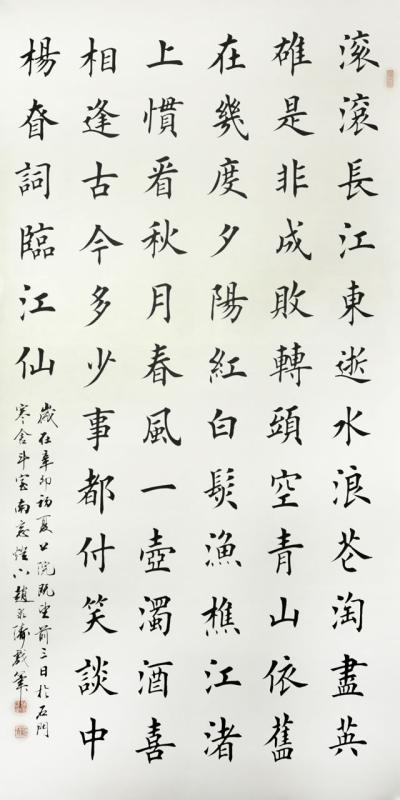 滚滚長江東逝水浪花淘盡英
雄是非成敗轉頭空青山依舊
在幾度夕陽紅白髮漁樵江渚
上慣看秋月春風一壺濁酒喜
相逢古今多少事都付笑談中
楊眘詞臨江仙
歲在辛卯初夏既望前三日於石門
寒舍斗室南窗燈下趙